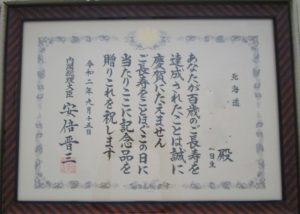 北海道
殿
あなたが百歳のご長寿を
達成されたことは誠に
慶賀にたえません
ご長寿をことほぐこの日に
当たりここに記念品を
贈りこれを祝します
令和二年九月十五日
内閣総理大臣 安倍晋三